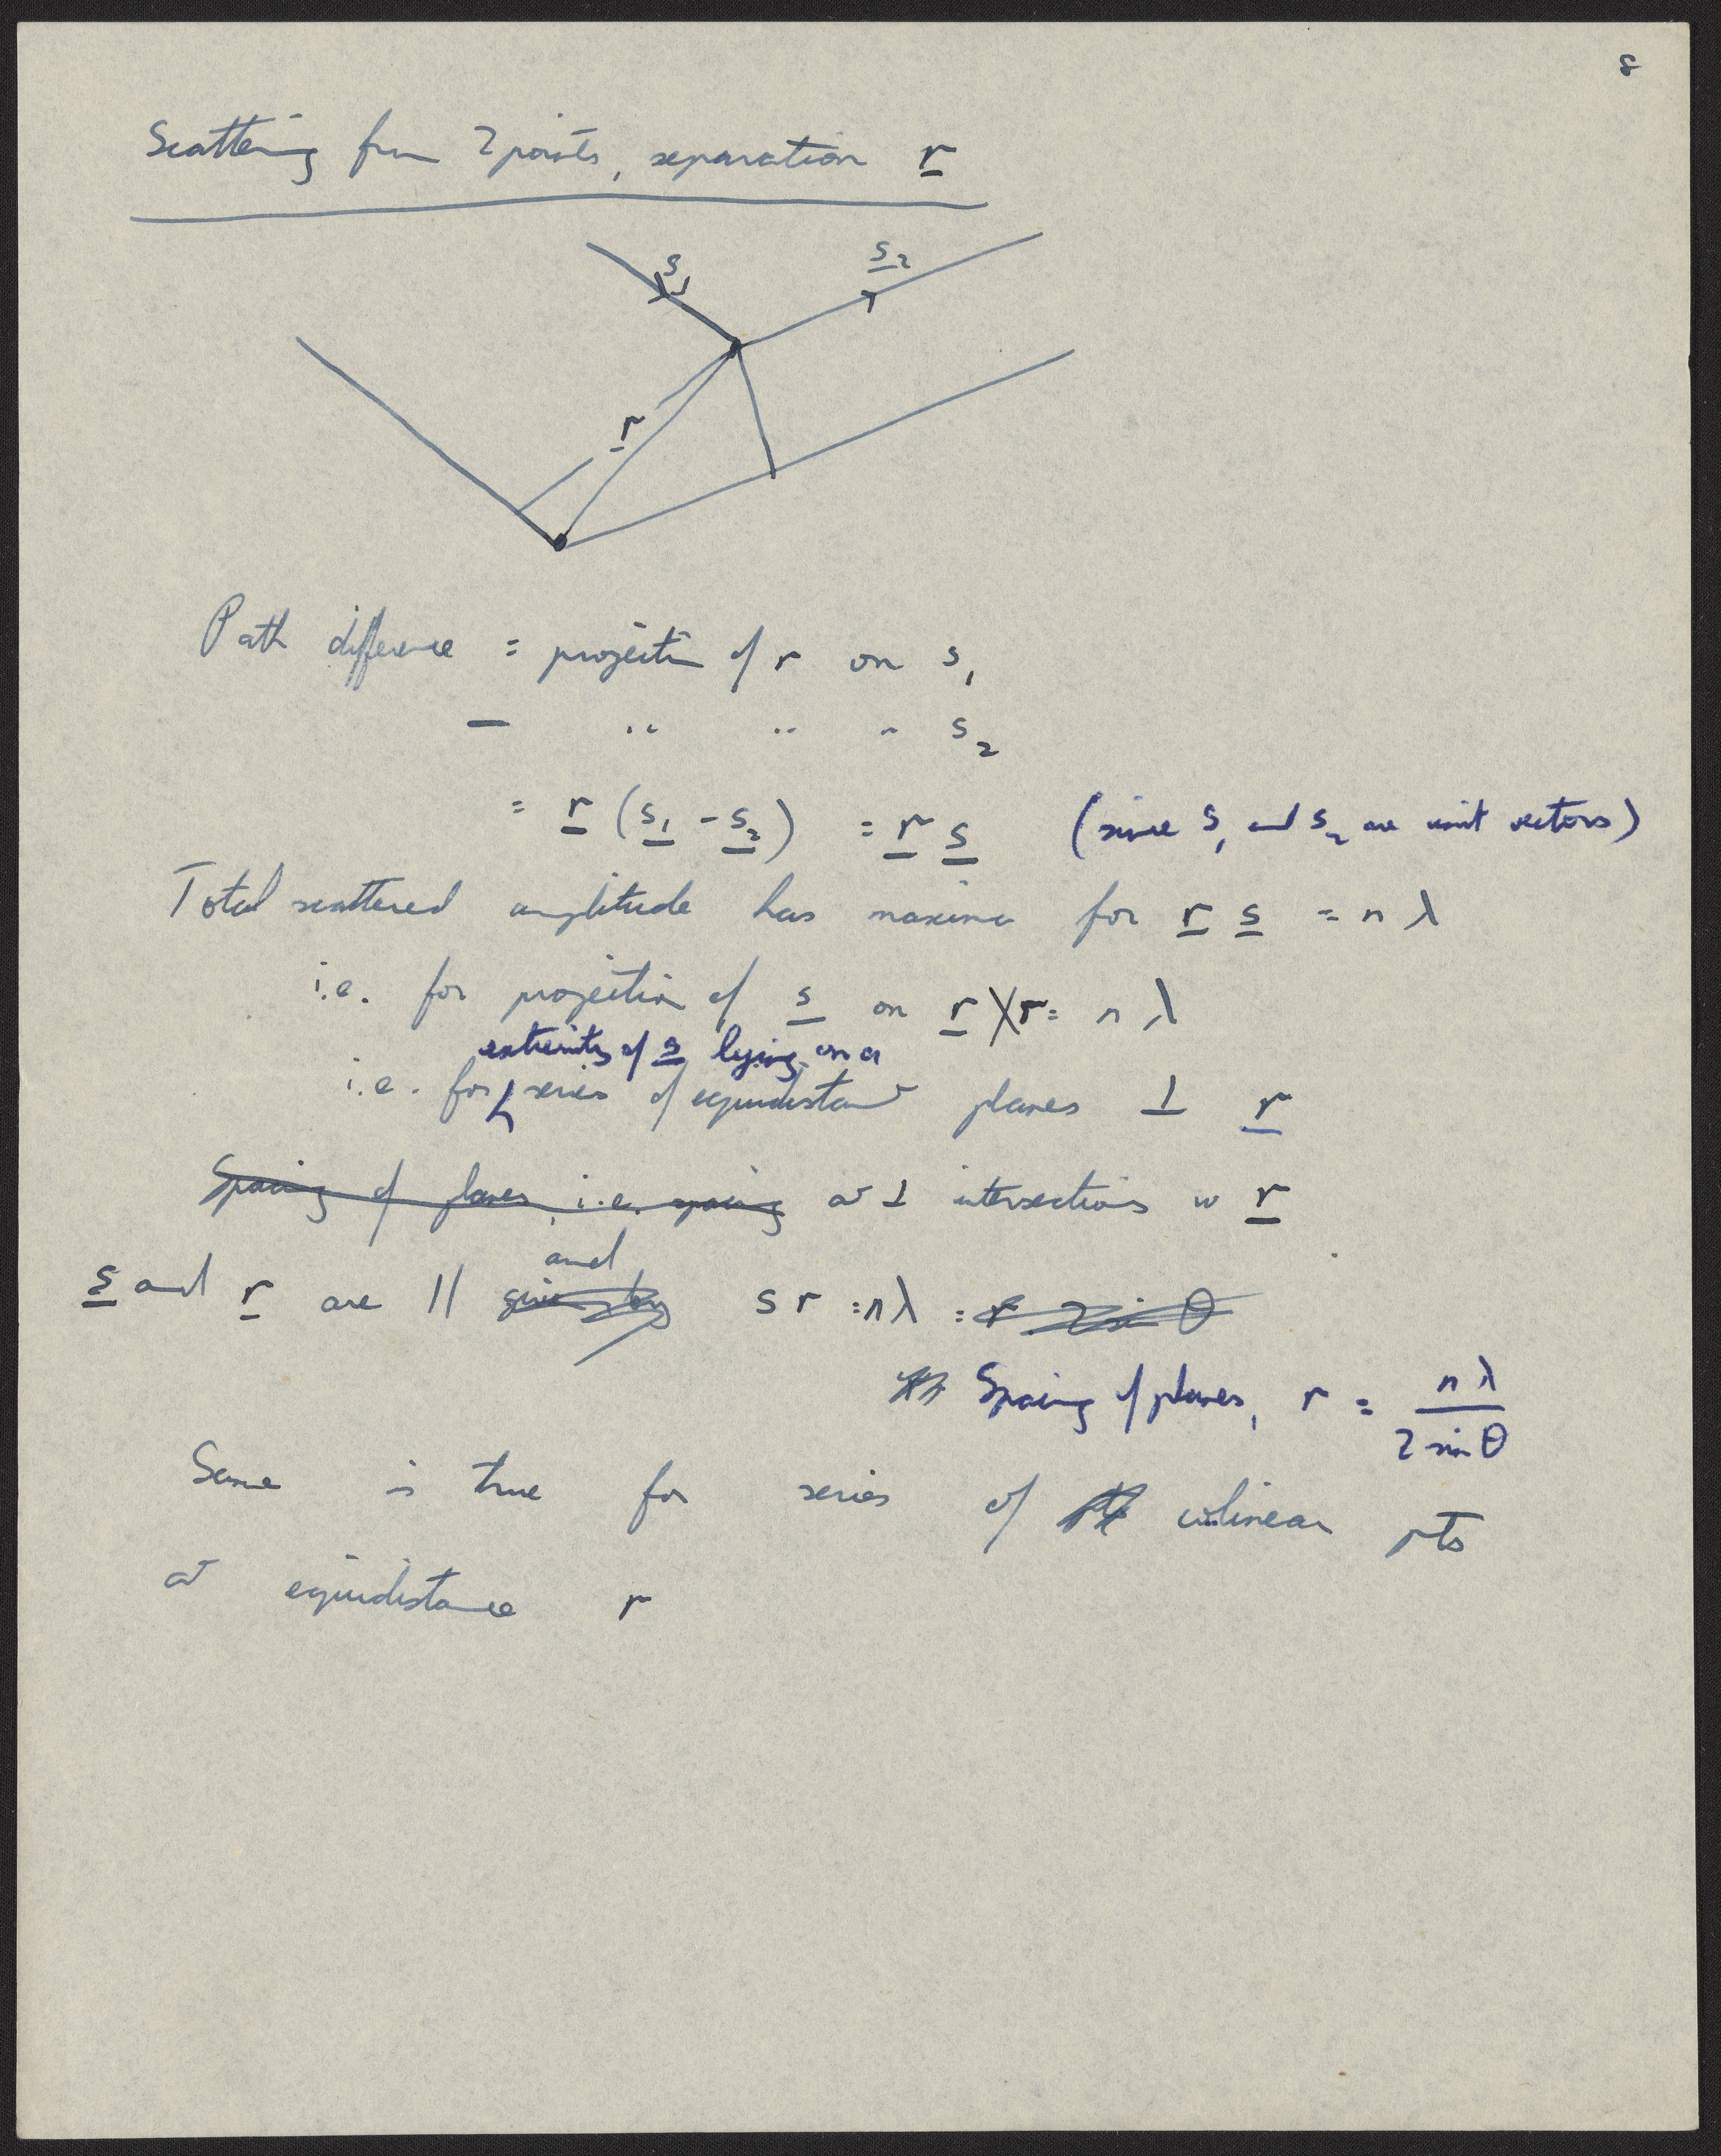 8
Scattering from 2 points, separation r
s1
s2
r
Path difference = projection of r on s1
— " " " s2
= r (s1 - s2) = r s (since s1 and s2 are unit vectors)
Total scattered amplitude has maxima for r s = n λ
i.e. for projection of s on r × r = n λ
extremity of s lying on a
i.e. for series of equidistant planes ⊥ r
Spacing of planes, i.e. spacing at ⊥ intersections w r
and
s and r are || given by s r = nλ = r 2 sin θ
Spacing of planes, r = nλ / 2 sin θ
Same is true for series of colinear pts
at equidistance r